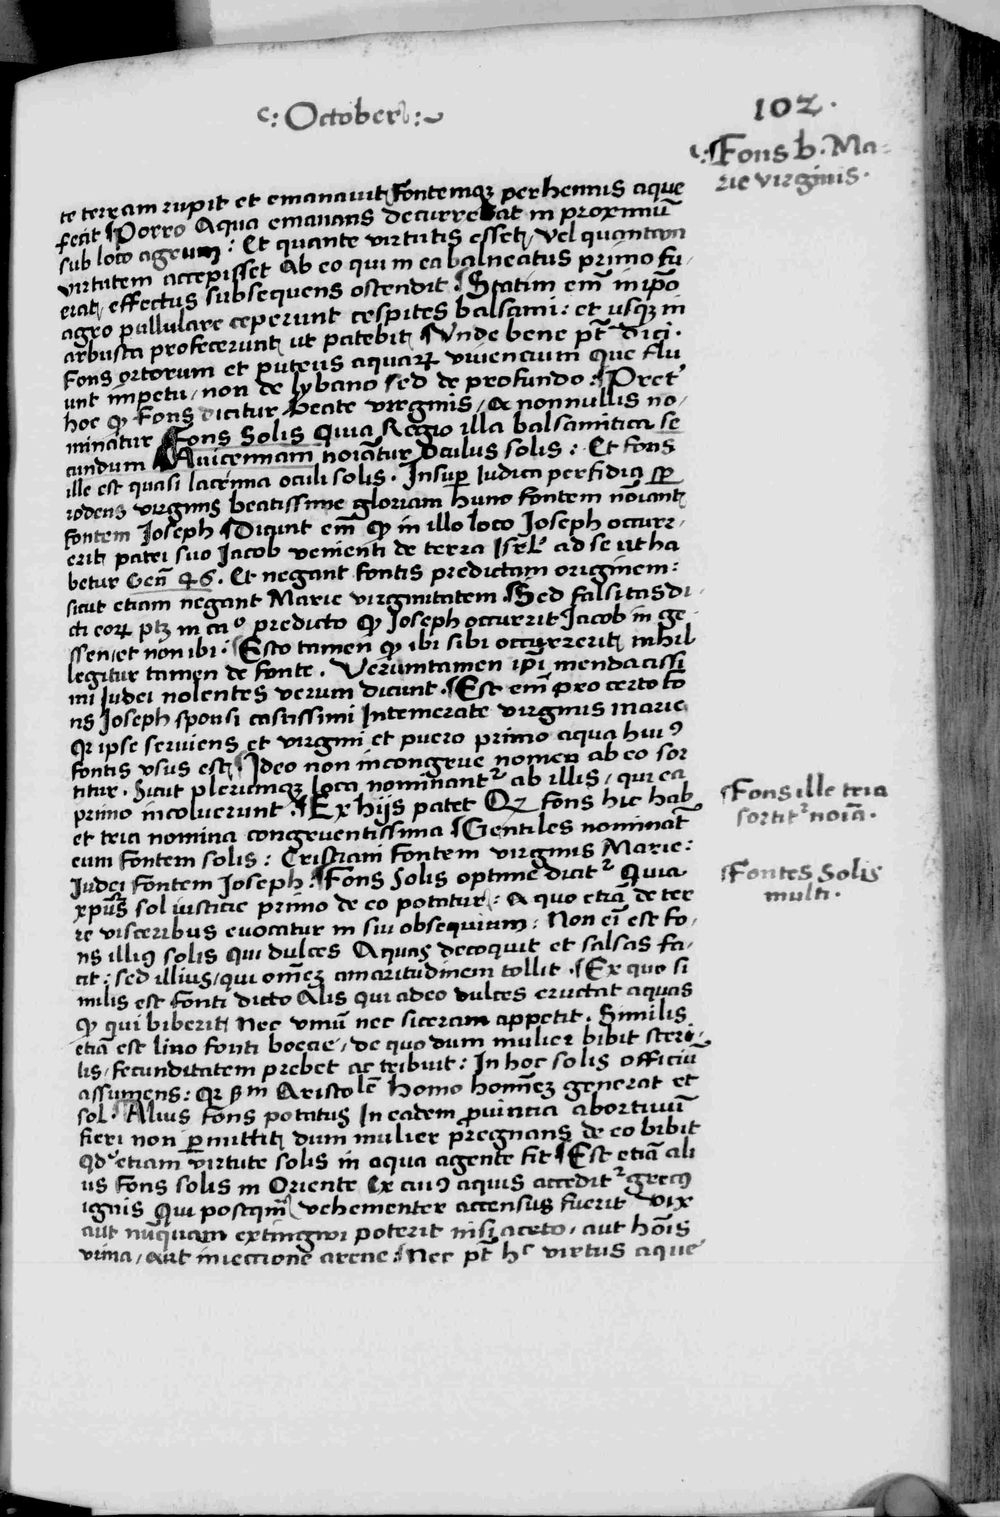 : October :
102.
Fons b. Ma-
rie virginis.
te terram rupit et emanavit fontemqꝫ perhennis aque
fecit Porro Aqua emanans decurrebat in proximū
sub loco agrum : Et quante virtutis esset, vel quantam
virtutem accepisset Ab eo qui in ea balneatus primo fu-
erat, effectus subsequens ostendit. Statim em̄ in ip̄o
agro pullulare ceperunt cespites balsami : et usqꝫ in
arbusta profecerunt, ut patebit. Unde bene pt̄ dici.
Fons ortorum et puteus aquarꝝ viventium Que flu
unt impetu, non de lybano sed de profundo. Pret'
hoc ꝙ Fons dicitur beate virginis, a nonnullis no-
minatur Fons Solis Quia Regio illa balsamitica se
cundum Avicennam noīatur oculus solis : Et fons
ille est quasi lacrima oculi solis. Insuꝑ Iudica perfidia
rodens virginis beatissime gloriam hunc fontem nōiant
fontem Joseph Dicunt em̄ ꝙ in illo loco Joseph occurr-
erit patri suo Jacob venienti de terra Isrl' ad se ut ha
betur Gen̄ 46. Et negant fontis predictam originem :
sicut etiam negant Marie virginitatem. Sed falsitas di-
cti eorꝝ ptꝫ in ca° predicto ꝙ Joseph occurrit Jacob in ge
ssen, et non ibi : Esto tamen ꝙ ibi sibi occurrerit, nihil
legitur tamen de fonte. Verumtamen ip̄i mendacissi
mi Judei nolentes verum dicunt. Est em̄ pro certo fo
ns Joseph sponsi castissimi Intemerate virginis marie
Qꝛ ipse serviens et virgini et puero primo aqua huiꝰ
fontis vsus est, Ideo non incongrue nomen ab eo sor
titur. Sicut plerumqꝫ loca nominantʳ ab illis, qui ea
primo incoluerunt. Ex hijs patet Qꝫ fons hic hab
et tria nomina congruentissima Gentiles nomināt
eum Fontem solis : Cristiani Fontem virginis Marie :
Judei Fontem Joseph : Fons Solis optime dicitʳ Quia
xpūs sol iusticie primo de eo potatur : A quo etiā de ter
re visceribus evocatur in sui obsequium : Non eī est fo-
ns illiꝰ solis qui dulces Aquas decoquit et salsas fa-
cit : sed illius, qui om̄eꝫ amaritudinem tollit. Ex quo si
milis est fonti dicto Alis qui adeo dulces eructat aquas
ꝙ qui biberit, nec vinū nec siceram appetit. Similis
etiā est lino fonti boecie, de quo dum mulier bibit steri-
lis, fecunditatem prebet ac tribuit : In hoc solis officiū
assumens : Qꝛ ẜm Aristolē Homo homīeꝫ generat et
sol. Alius fons potatus In eadem ꝓvintia abortivū
fieri non ꝑmittit, dum mulier pregnans de eo bibit
Qd' etiam virtute solis in aqua agente fit Est etiā ali
us fons solis in Oriente Ex cuiꝰ aquis acceditʳ grecꝰ
ignis Qui postqm̄ vehementer accensus fuerit vix
aut nūquam extingwi poterit nisi aceto, aut hōis
vrina, aut iniectione arene. Nec pt̄ hᶜ virtus aque
Fons ille tria
sortitʳ noīa.
Fontes Solis
multi.